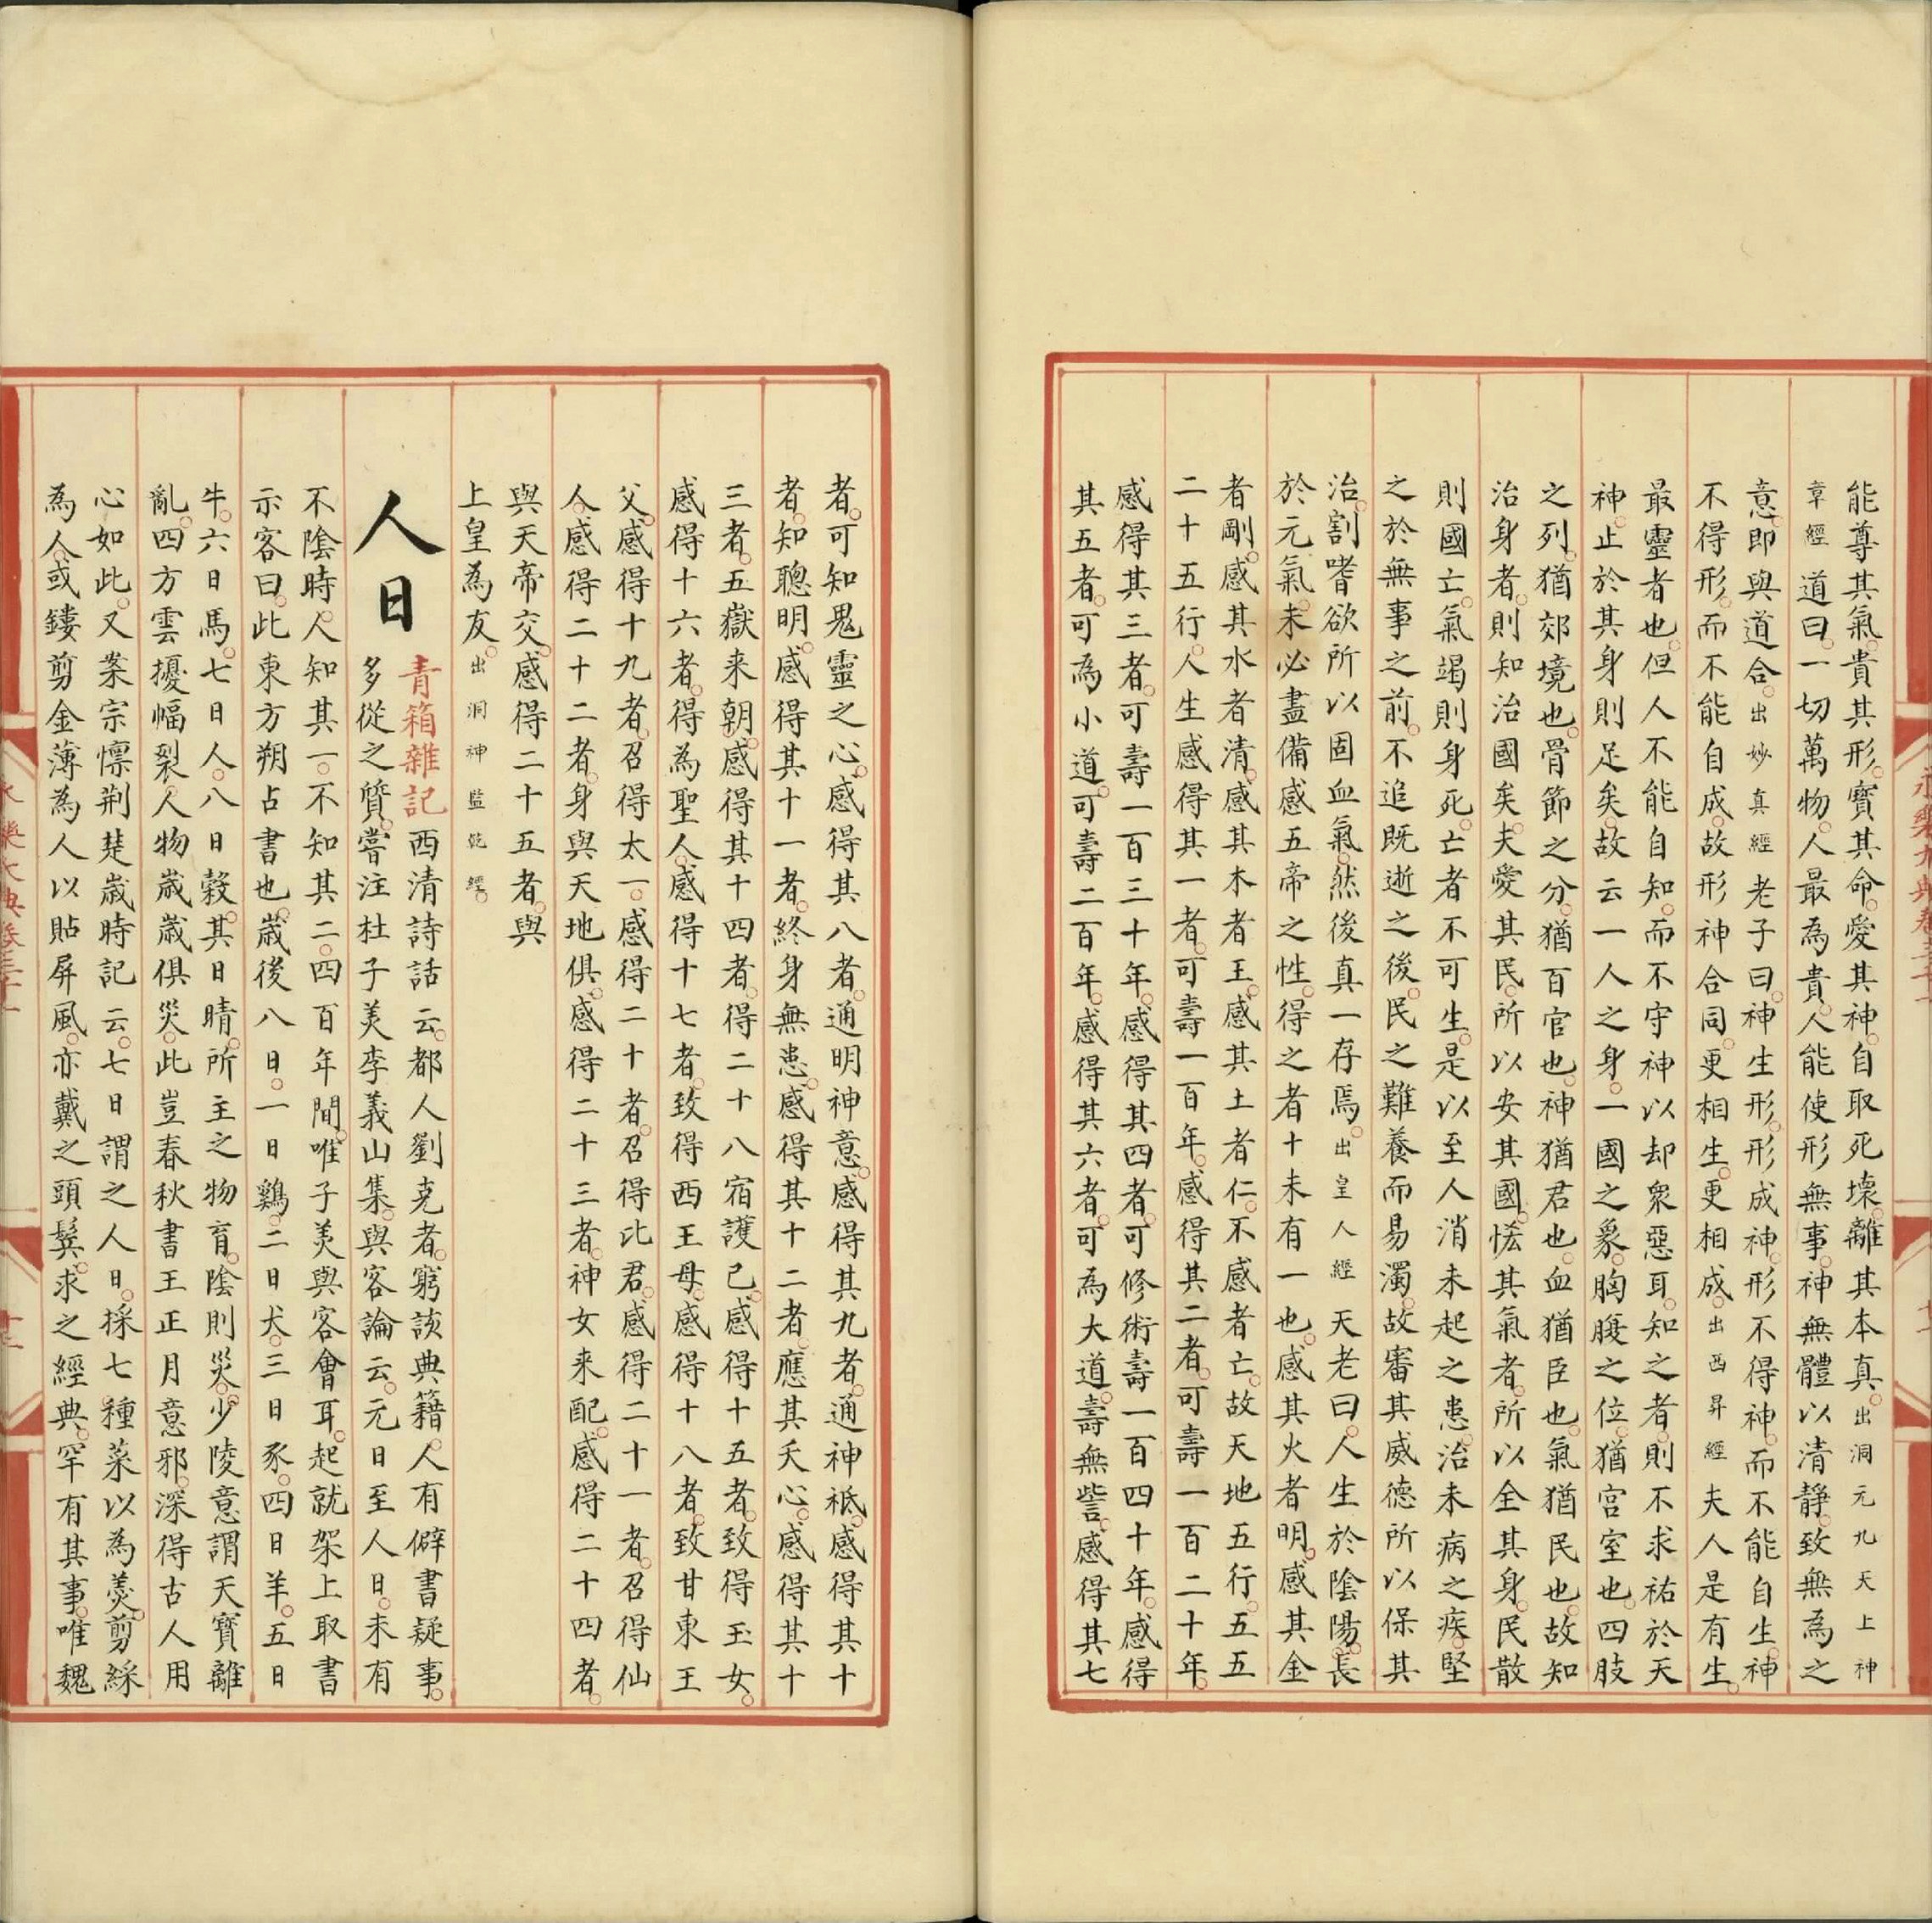 能尊其氣貴其形寶其命愛其神自取死壞離其本真出洞元九天上神
章經道曰一切萬物人最為貴人能使形無事神無體以清静致無為之
意即與道合出妙真經老子曰神生形形成神形不得神而不能自生神
不得形而不能自成故形神合同更相生更相成出西昇經夫人是有生
最靈者也但人不能自知而不守神以却衆惡耳知之者則不求祐於天
神止於其身則足矣故云一人之身一國之象胸腹之位猶宮室也四肢
之列猶郊境也骨節之分猶百官也神猶君也血猶臣也氣猶民也故知
治身者則知治國矣夫愛其民所以安其國恡其氣者所以全其身民散
則國亡氣竭則身死亡者不可生是以至人消未起之患治未病之疾堅
之於無事之前不追既逝之後民之難養而易濁故審其威德所以保其
治割嗜欲所以固血氣然後真一存焉出皇人經天老曰人生於陰陽長
於元氣未必盡備感五帝之性得之者十未有一也感其火者明感其金
者剛感其水者清感其木者王感其土者仁不感者亡故天地五行五五
二十五行人生感得其一者可壽一百年感得其二者可壽一百二十年
感得其三者可壽一百三十年感得其四者可修術壽一百四十年感得
其五者可為小道可壽二百年感得其六者可為大道壽無訾感得其七
者可知鬼靈之心感得其八者通明神意感得其九者通神祇感得其十
者知聰明感得其十一者終身無患感得其十二者應其夭心感得其十
三者五嶽来朝感得其十四者得二十八宿護己感得十五者致得玉女
感得十六者得為聖人感得十七者致得西王母感得十八者致甘東王
父感得十九者召得太一感得二十者召得北君感得二十一者召得仙
人感得二十二者身與天地俱感得二十三者神女来配感得二十四者
與天帝交感得二十五者與
上皇為友出洞神監乾經
人日
青箱雜記西清詩話云都人劉克者窮該典籍人有僻書疑事
多從之質嘗注杜子美李義山集與客論云元日至人日未有
不陰時人知其一不知其二四百年間唯子美與客會耳起就架上取書
示客曰此東方朔占書也歲後八日一日鷄二日犬三日豕四日羊五日
牛六日馬七日人八日穀其日晴所主之物育陰則災少陵意謂天寶離
亂四方雲擾幅裂人物歲歲俱災此豈春秋書王正月意邪深得古人用
心如此又案宗懍荆楚歲時記云七日謂之人日採七種菜以為羹剪綵
為人或鏤剪金薄為人以貼屏風亦戴之頭鬢求之經典罕有其事唯魏